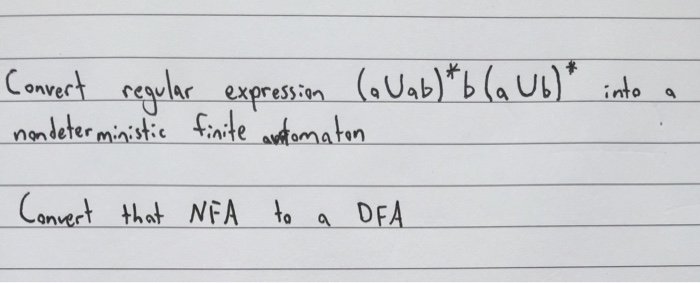 Convert regular expression (a∪ab)*b(a∪b)* into a
nondeterministic finite automaton
Convert that NFA to a DFA